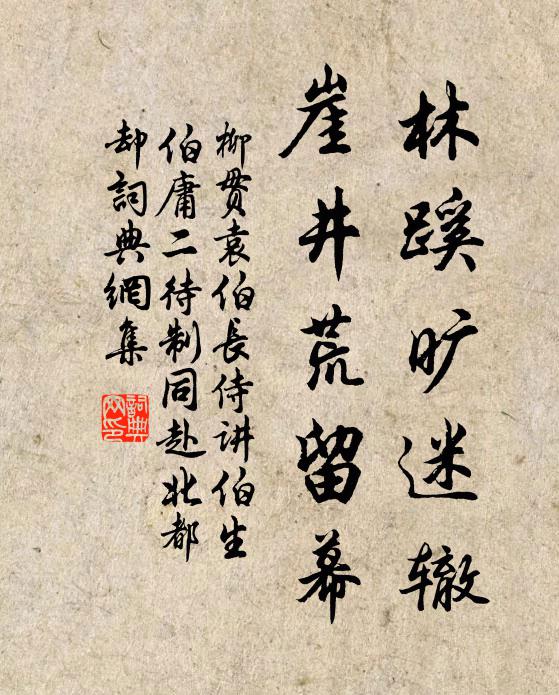 林蹊旷迷辙
崖井荒留幕
柳贯袁伯長侍讲伯生
伯庸二待制同赴北都
却詞典網集
詞典網印